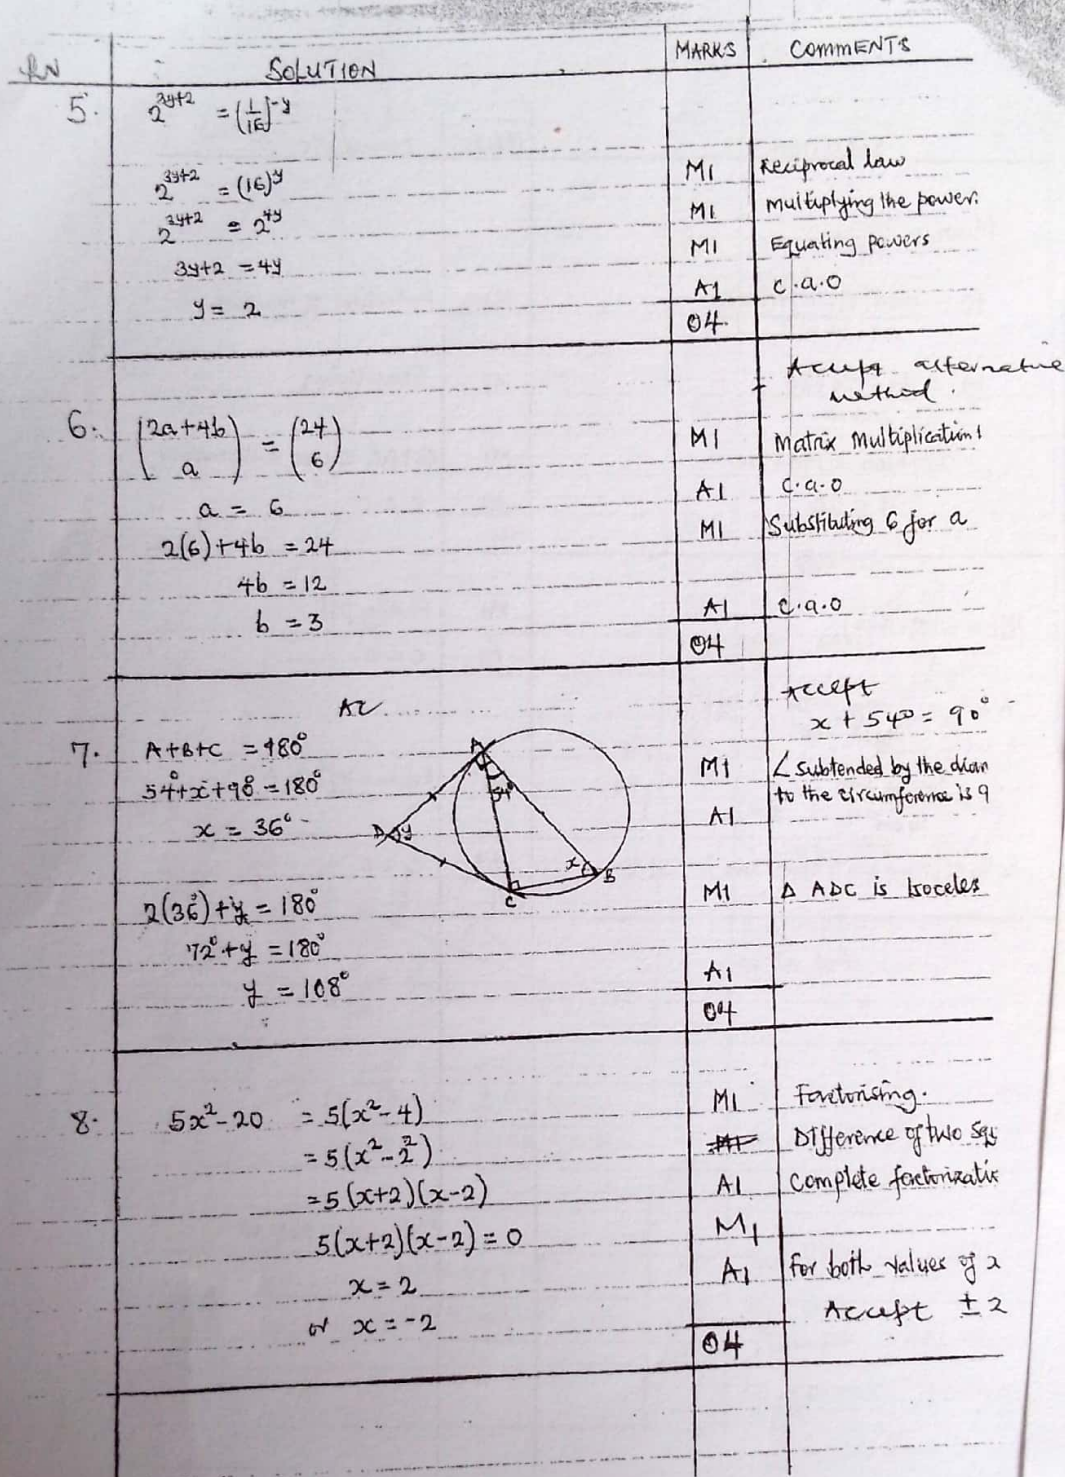 SOLUTION MARKS COMMENTS
5. 2^{3y+2} = (1/16)^{-y}
2^{3y+2} = (16)^y M1 Reciprocal law
2^{3y+2} = 2^{4y} M1 Multiplying the power
3y+2 = 4y M1 Equating powers
y = 2 A1 c.a.o
04
Accept alternative
method.
6. (2a+4b / a) = (24 / 6) M1 Matrix Multiplication
a = 6 A1 c.a.o
2(6)+4b = 24 M1 Substituting 6 for a
4b = 12
b = 3 A1 c.a.o
04
Accept
x + 54° = 90°
7. A+B+C = 180° M1 ∠ subtended by the diam
54°+x+90° = 180° to the circumference is 9
x = 36° A1
A
54°
D y
x B
C
2(36°)+y = 180° M1 Δ ADC is Isoceles
72°+y = 180°
y = 108° A1
04
8. 5x²-20 = 5(x²-4) M1 Factorising.
= 5(x²-2²) M1 Difference of two Squ
= 5(x+2)(x-2) A1 Complete factorizatio
5(x+2)(x-2) = 0 M1
x = 2 A1 for both values of x
or x = -2 Accept ±2
04